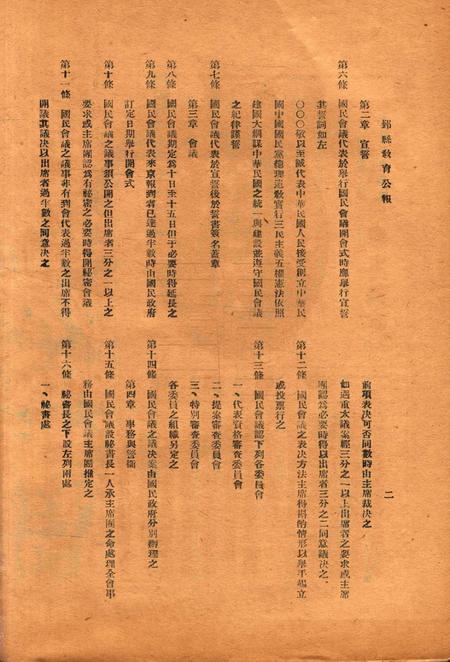 鄞縣教育公報
二
第二章　宣誓
第六條　國民會議代表於舉行國民會議開會式時應舉行宣誓
其誓詞如左
〇〇〇敬以至誠代表中華民國人民接受創立中華民
國中國國民黨總理遺教實行三民主義五權憲法依照
建國大綱謀中華民國之統一與建設並遵守國民會議
之紀律謹誓
第七條　國民會議代表於宣誓後於誓書簽名蓋章
第三章　會議
第八條　國民會議期定為十日至十五日但于必要時得延長之
第九條　國民會議代表來京報到者已達過半數時由國民政府
訂定日期舉行開會式
第十條　國民會議之議事須公開之但出席者三分之一以上之
要求或主席團認為有秘密之必要時得開秘密會議
第十一條　國民會議之議事非有到會代表過半數之出席不得
開議其議決以出席者過半數之同意決之
前項表決可否同數時由主席裁決之
如遇重大議案經三分之一以上出席者之要求或主席
團認為必要時得以出席者三分之二同意議決之
第十二條　國民會議之表決方法主席得酌情形以舉手起立
或投票行之
第十三條　國民會議設下列各委員會
一、代表資格審查委員會
二、提案審查委員會
三、特別審查委員會
各委員之組織另定之
第十四條　國民會議之議決案由國民政府分別辦理之
第四章　事務與警衛
第十五條　國民會議設秘書長一人承主席團之命處理全會事
務由國民會議主席團推定之
第十六條　秘書長之下設左列兩處
一、秘書處